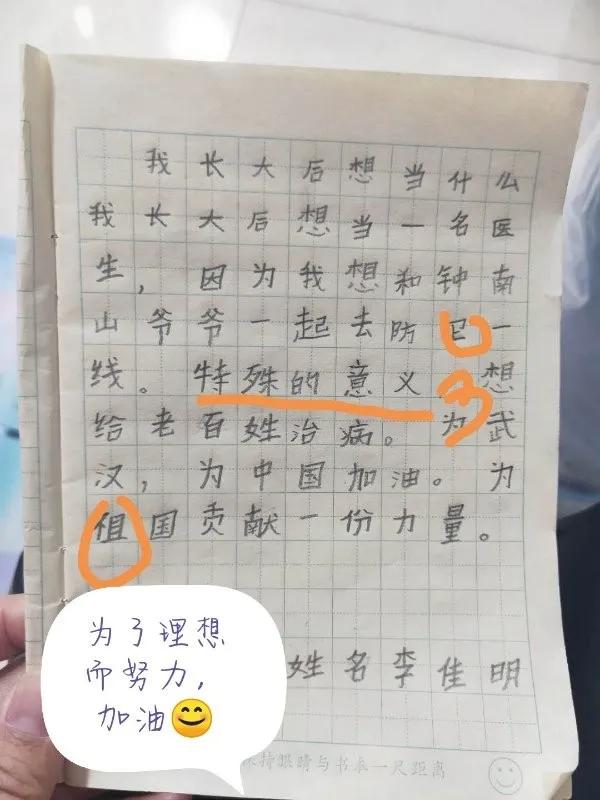 我长大后想当什么
我长大后想当一名医
生，因为我想和钟南
山爷爷一起去防一
线。特殊的意义 想
给老百姓治病。为武
汉，为中国加油。为
伹国贡献一份力量。
为了理想
而努力，
加油😄
姓名李佳明
持眼睛与书本一尺距离